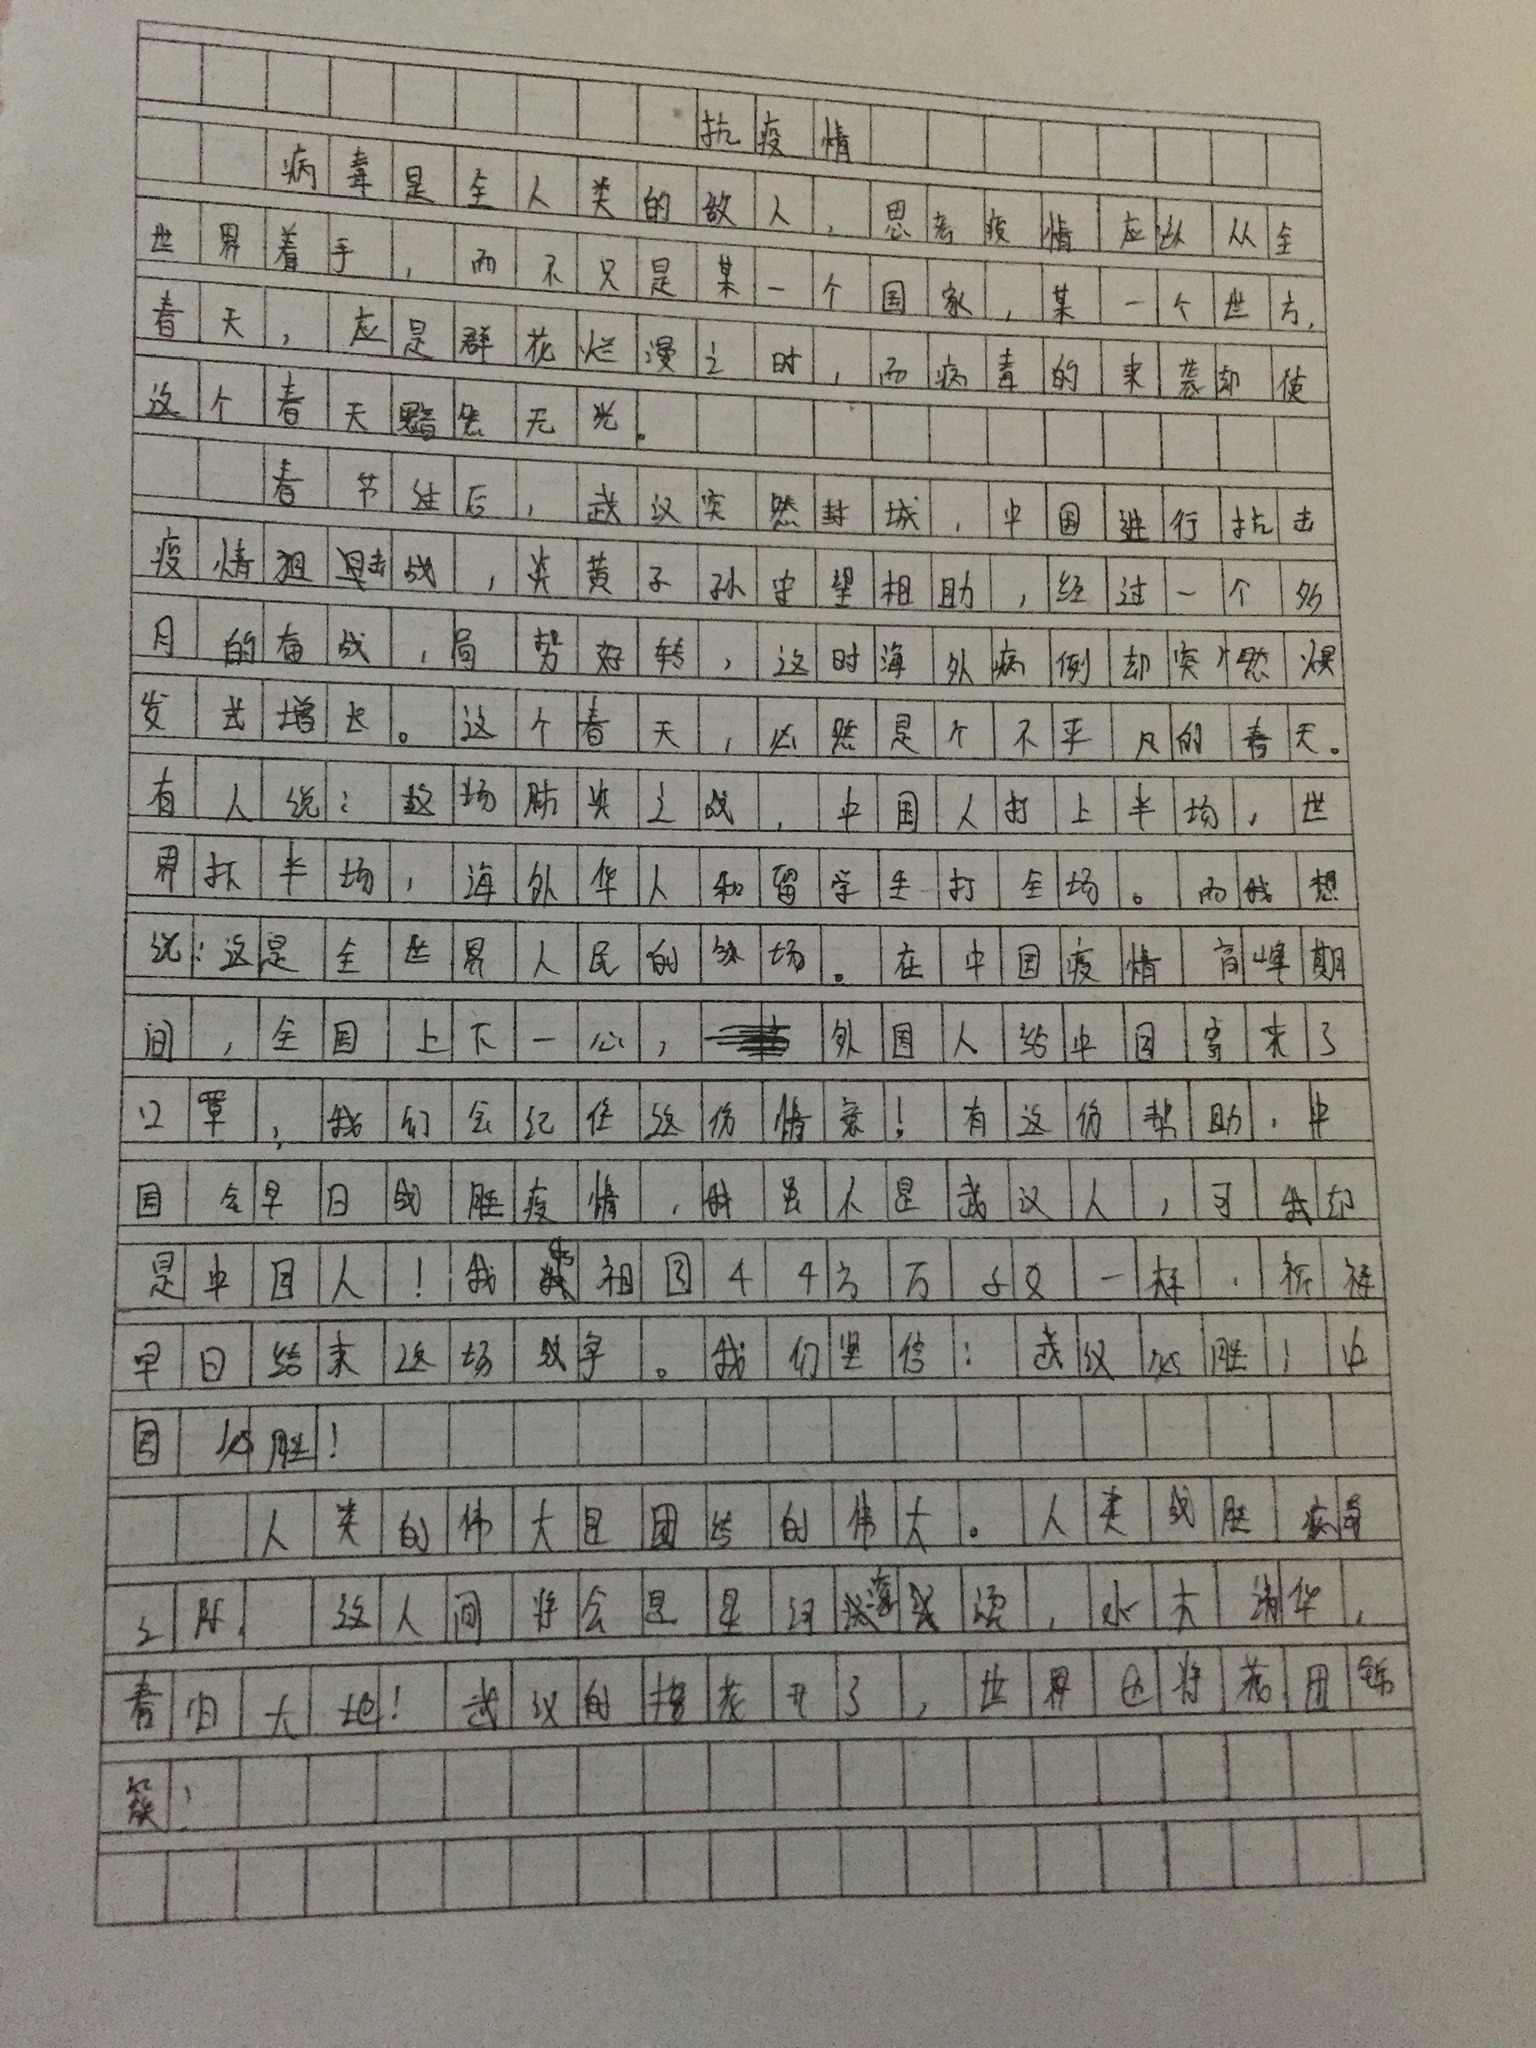 抗疫情
病毒是全人类的敌人，思考疫情应该从全
世界着手，而不只是某一个国家，某一个世方，
春天，应是群花烂漫之时，而病毒的来袭却使
这个春天黯然无光。
春节过后，武汉突然封城，中国进行抗击
疫情狙击战，炎黄子孙守望相助，经过一个多
月的奋战，局势好转，这时海外病例却突然爆
发式增长。这个春天，必然是个不平凡的春天。
有人说：这场肺炎之战，中国人打上半场，世
界打半场，海外华人和留学生打全场。而我想
说：这是全世界人民的终场。在中国疫情高峰期
间，全国上下一心，外国人给中国寄来了
口罩，我们会记住这份情意！有这份帮助，中
国会早日战胜疫情，我虽不是武汉人，可我却
是中国人！我和祖国44万万子女一样，祈祷
早日结束这场战争。我们坚信：武汉必胜！中
国必胜！
人类的伟大是团结的伟大。人类战胜病毒
之际，这人间将会是星河滚烫，水木清华，
春归大地！武汉的樱花开了，世界也将花团锦
簇！